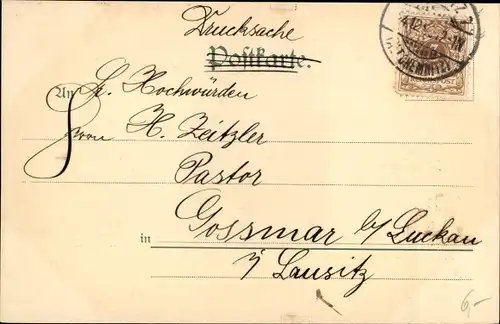 Drucksache
Postkarte.
An Sr. Hochwürden
Herrn H. Zeitzler
Pastor
in Gossmar b/Luckau
i/ Lausitz
6,-